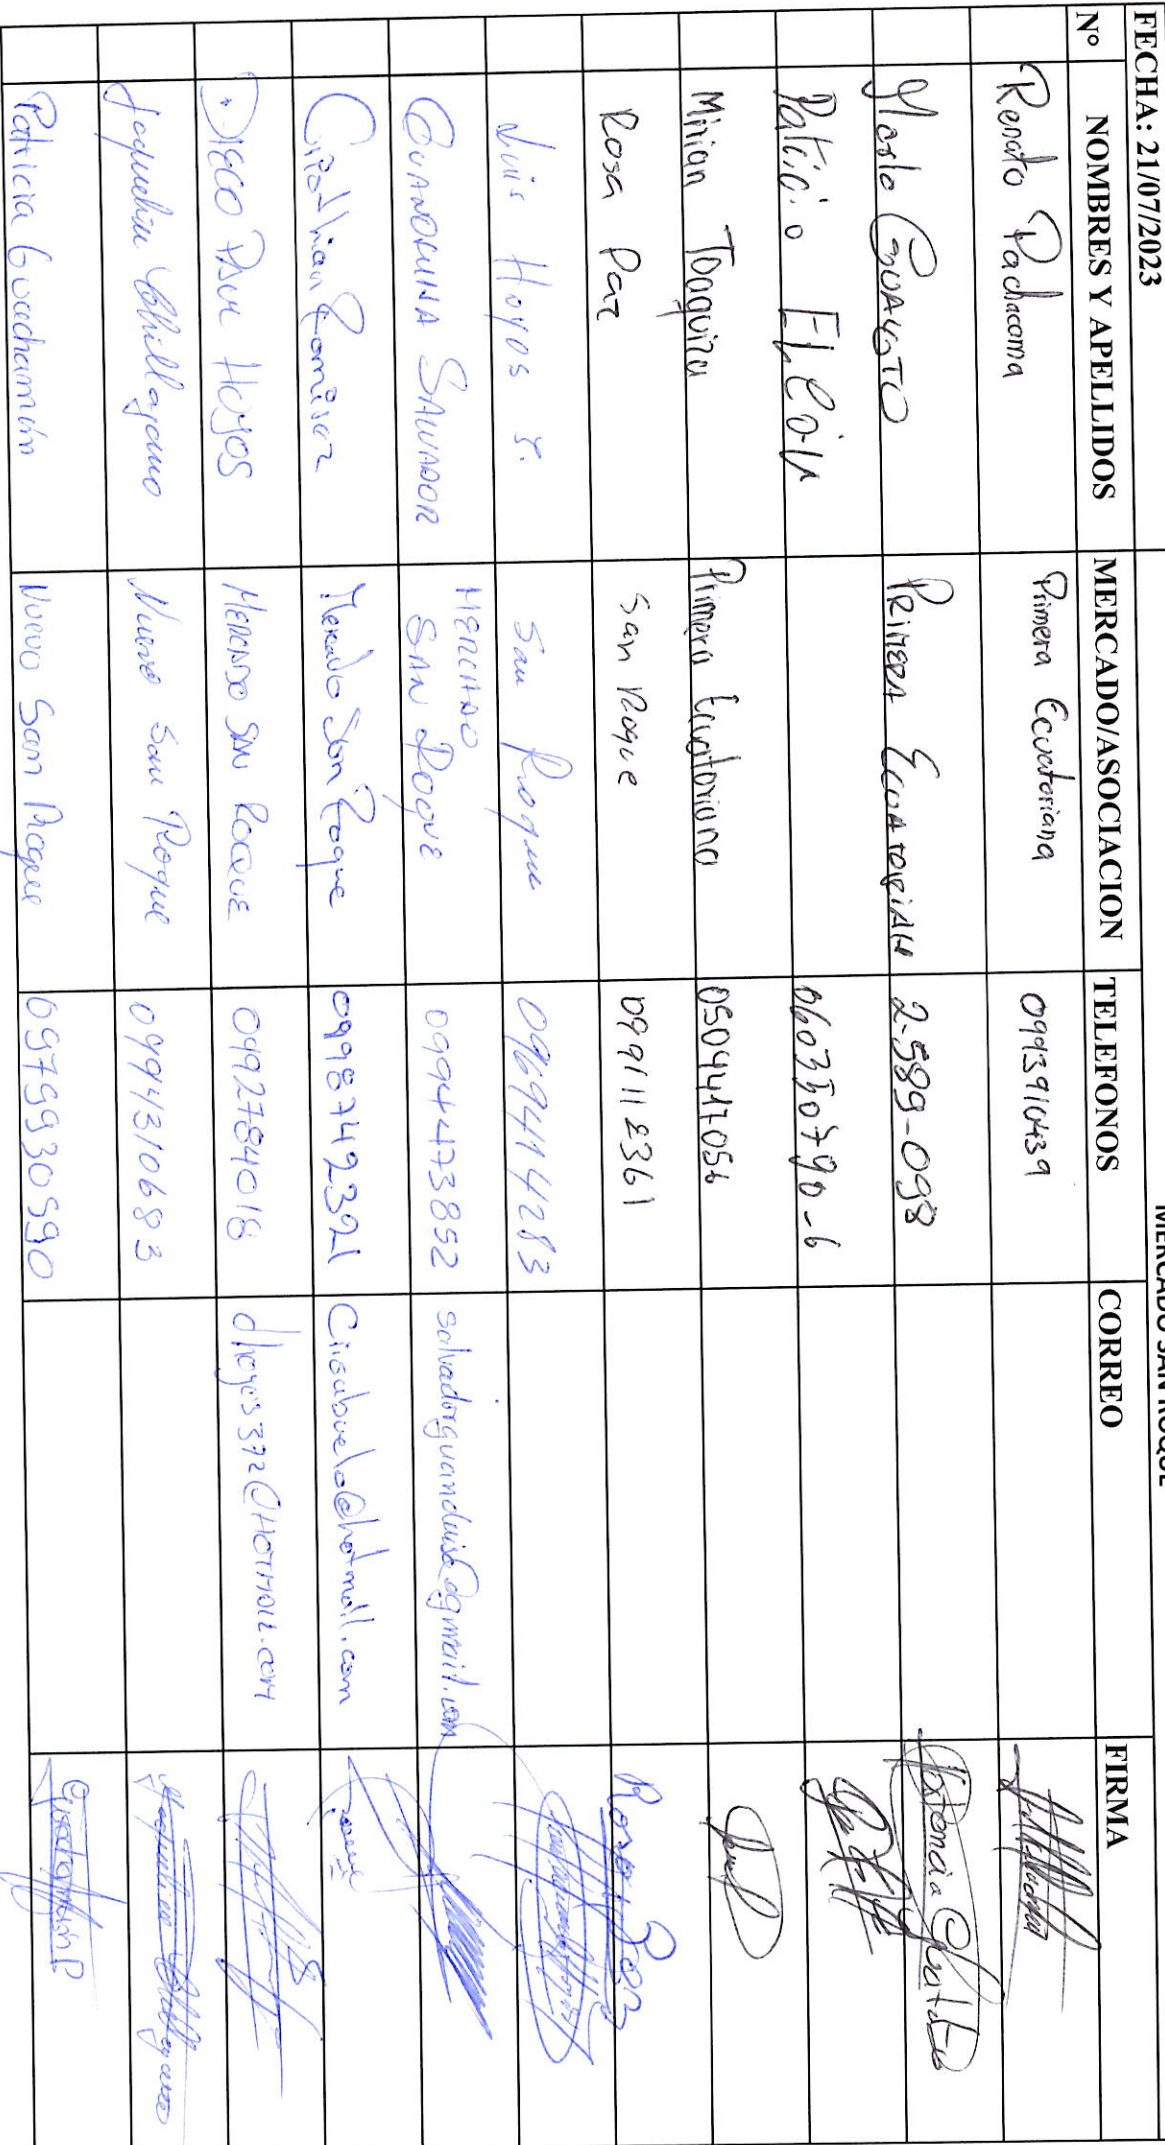 MERCADO SAN ROQUE
FECHA: 21/07/2023
Nº NOMBRES Y APELLIDOS MERCADO/ASOCIACION TELEFONOS CORREO FIRMA
Renato Pachacama Primera Ecuatoriana 0993910439
GUALOTO PRIMERA ECUATORIANA 2-589-098
Patricio 060350790-6
Mirian Toaquiza Primera Ecuatoriana 0504417056
Rosa Paz San Roque 0991112361 Rosa Paz
Luis Hoyos Y. San Roque 0969414283
GUANOLUISA SALVADOR MERCADO SAN ROQUE 0994473852 salvadorguanduisa@gmail.com
Cristhian Ramirez Mercado San Roque 0998742321 Crisabuelo@hotmail.com
DIEGO PAUL HOYOS MERCADO SAN ROQUE 0992784018 dhoyos372@HOTMAIL.COM
Jaqueline Chillagano Nuevo San Roque 0994310683
Patricia Guachamin Nuevo San Roque 0979930590 Guachamin P